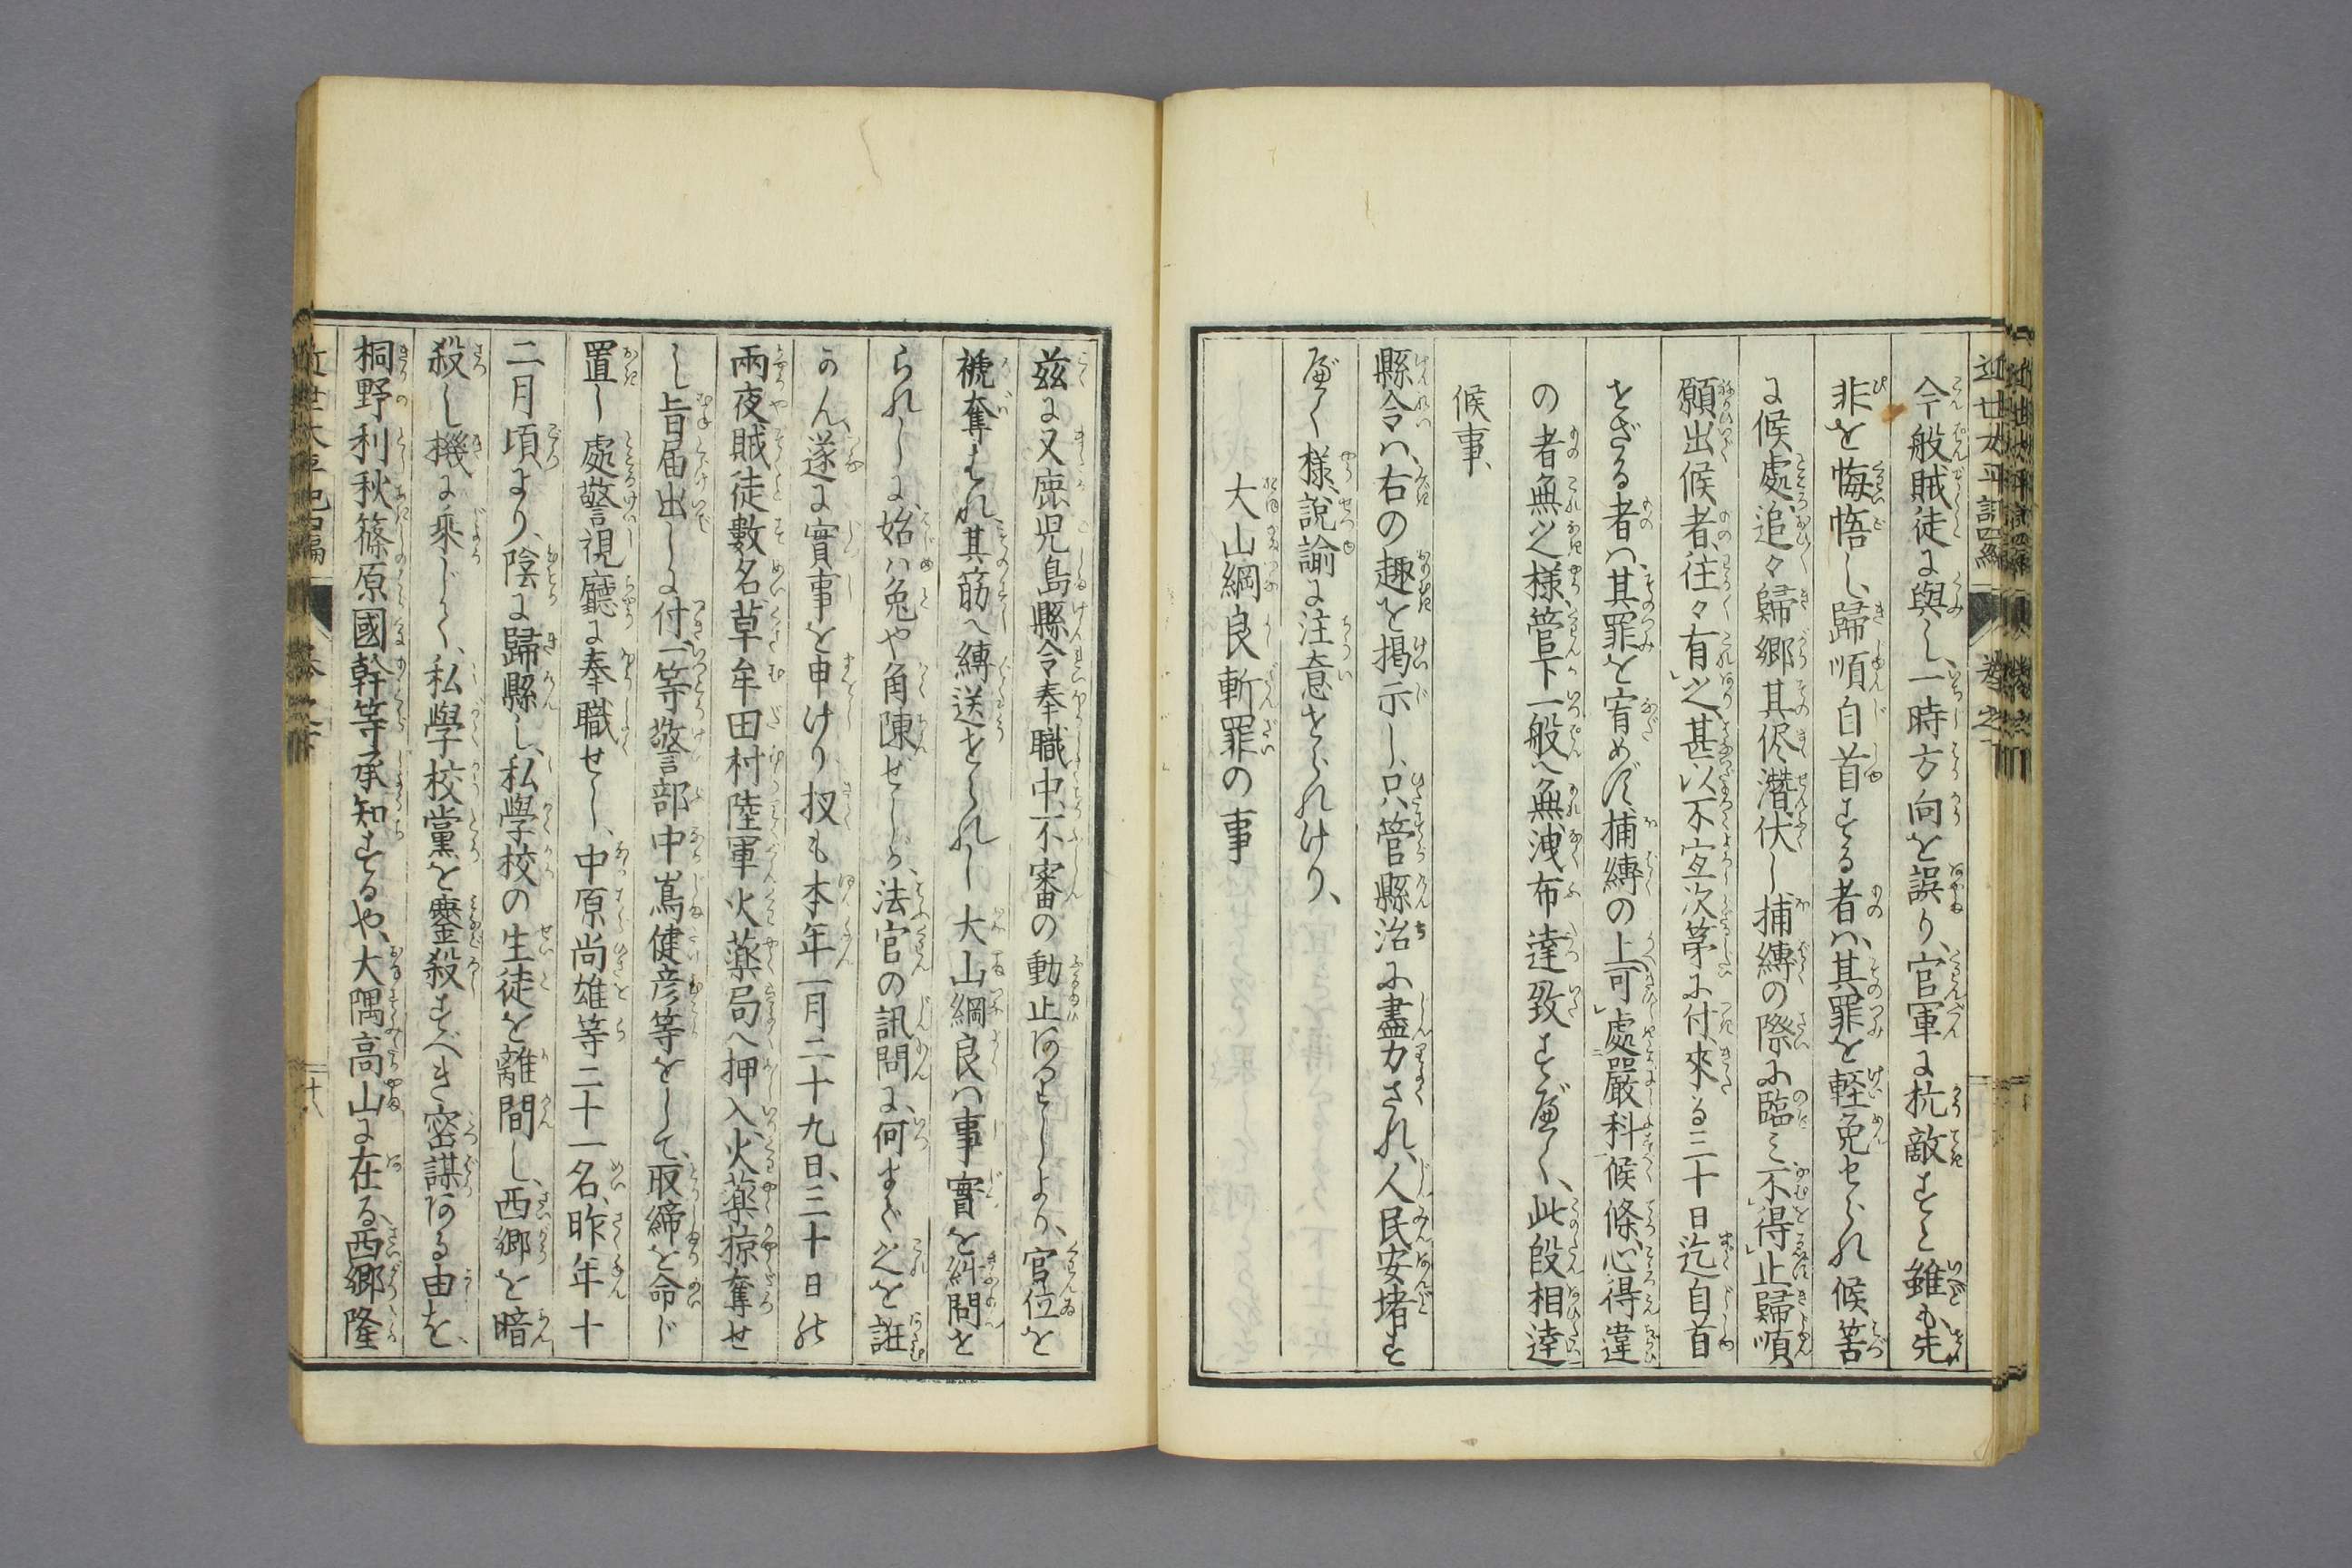 今般賊徒に與し、一時方向を誤り、官軍に抗敵すと雖も、先
非を悔悟し、歸順自首する者ハ、其罪を軽免せられ候筈
に候處、追々歸郷其侭潜伏し、捕縛の際に臨ミ不得止歸順、
願出候者、往々有之、甚以不宜次第に付、來る三十日迄自首
せざる者ハ、其罪を宥めず、捕縛の上可處嚴科候條、心得違
の者無之様、管下一般へ無洩布達致すべく、此段相達
候事、
縣令ハ、右の趣を掲示し、只管縣治に盡力され、人民安堵す
べく様、説諭に注意せられけり、
大山綱良斬罪の事
茲に又鹿児島縣令奉職中、不審の動止あるとしより、官位を
褫奪され、其筋へ縛送せられし大山綱良ハ事實を糾問せ
られしに、始ハ兎や角陳ぜしが、法官の訊問に、何まで之を誑
かん、遂に實事を申けり、扨も本年一月二十九日、三十日の
兩夜賊徒數名、草牟田村陸軍火薬局へ押入、火薬掠奪せ
し旨届出しに付、一等警部中嶌健彦等をして、取締を命じ
置し處、警視廳に奉職せし、中原尚雄等二十一名、昨年十
二月頃より、陰に歸縣し、私學校の生徒を離間し、西郷を暗
殺し機に乗じく、私學校黨を鏖殺すべき密謀ある由を、
桐野利秋篠原國幹等承知するや、大隅高山に在る、西郷隆